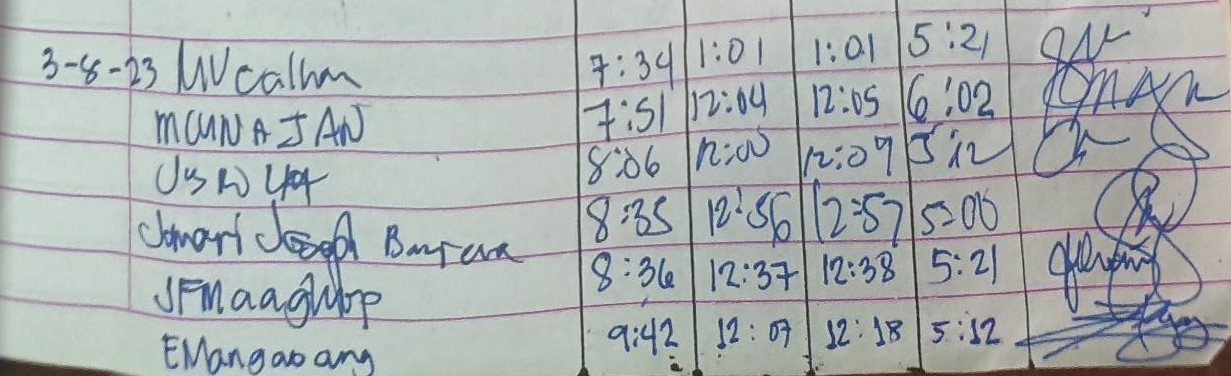 3-8-23 7:34 1:01 1:01 5:21
MCUNAJAN 7:51 12:04 12:05 6:02
8:06 12:00 12:09 5:12
Jomari Joseph Barrera 8:35 12:56 12:57 5:00
8:36 12:37 12:38 5:21
EMangaoang 9:42 12:07 12:18 5:12